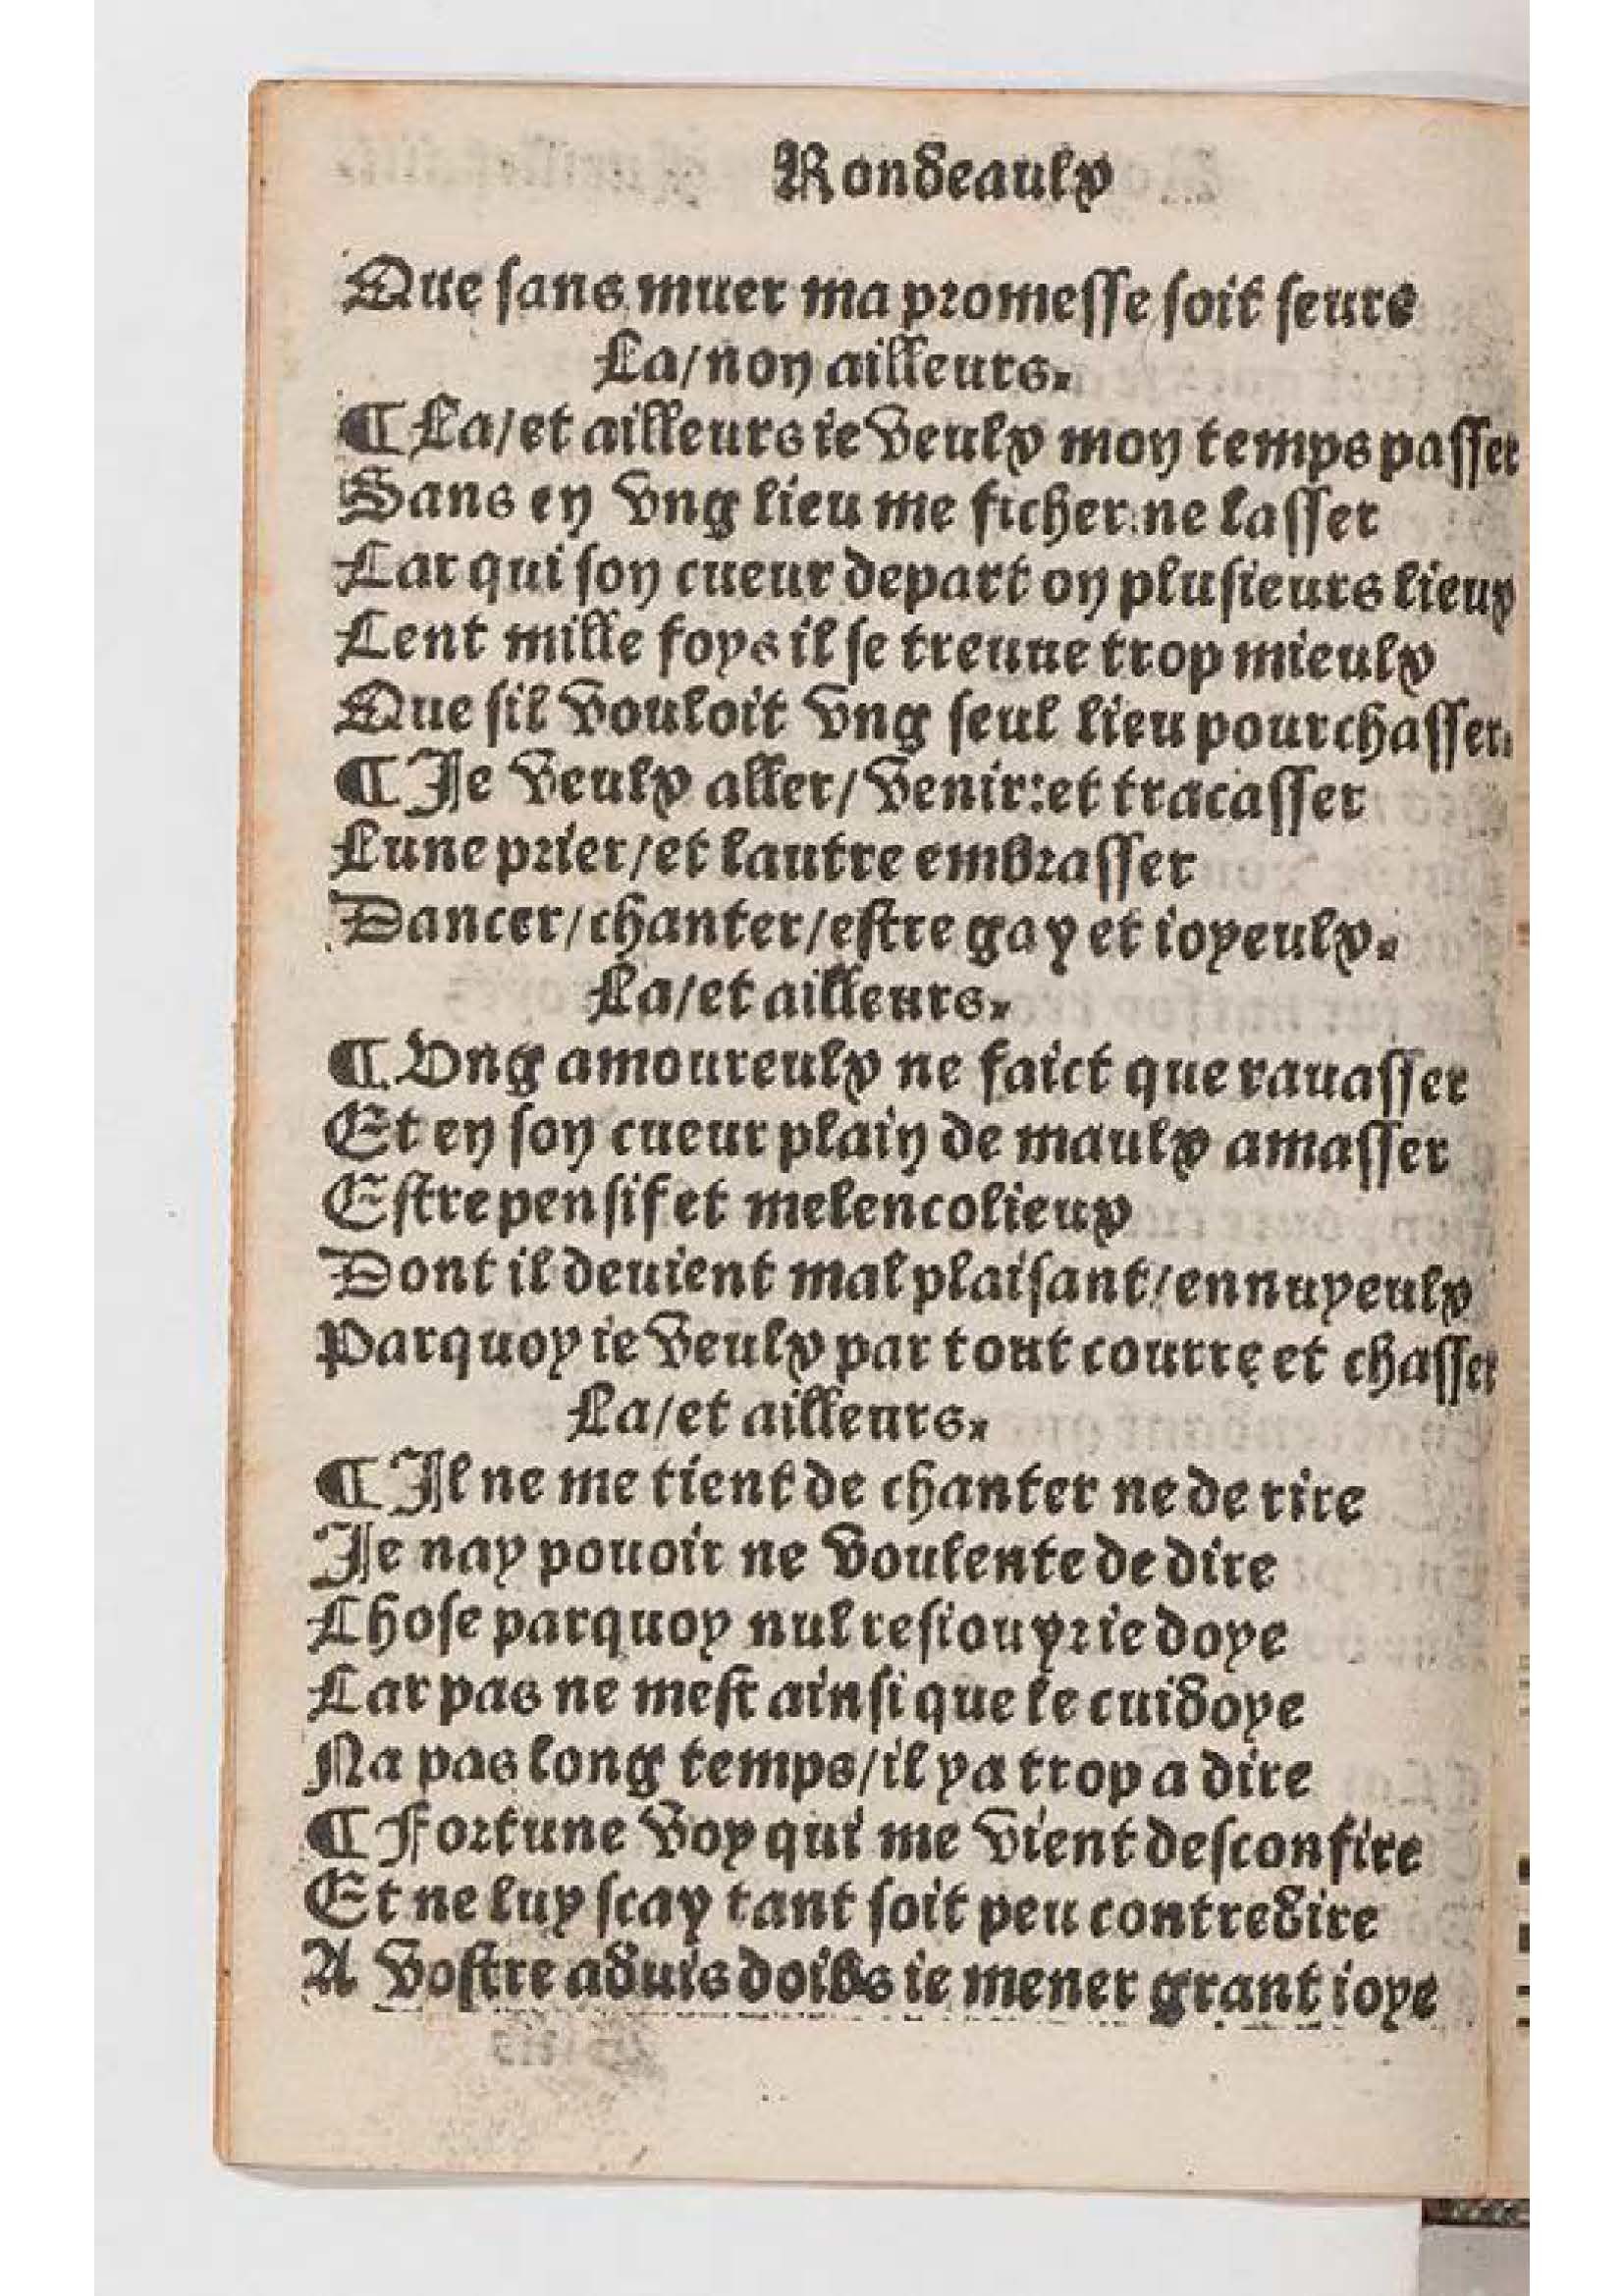 Rondeaulx
Que sans muer ma promesse soit seure
La/non ailleurs.
¶ La/et ailleurs ie veulx mon temps passer
Sans en vng lieu me ficher:ne lasser
Car qui son cueur depart on plusieurs lieux
Cent mille foys il se treuue trop mieulx
Que sil vouloit vng seul lieu pourchasser.
¶ Je veulx aller/venir:et tracasser
Lune prier/et lautre embrasser
Dancer/chanter/estre gay et ioyeulx.
La/et ailleurs.
¶ Vng amoureulx ne faict que rauasser
Et en son cueur plain de maulx amasser
Estre pensif et melencolieux
Dont il deuient mal plaisant/ennuyeulx
Parquoy ie veulx par tout courre et chasser
La/et ailleurs.
¶ Il ne me tient de chanter ne de rire
Je nay pouoir ne voulente de dire
Chose parquoy nul resiouyr ie doye
Car pas ne mest ainsi que ie cuidoye
Na pas long temps/il ya trop a dire
¶ Fortune voy qui me vient desconfire
Et ne luy scay tant soit peu contredire
A vostre aduis doibs ie mener grant ioye